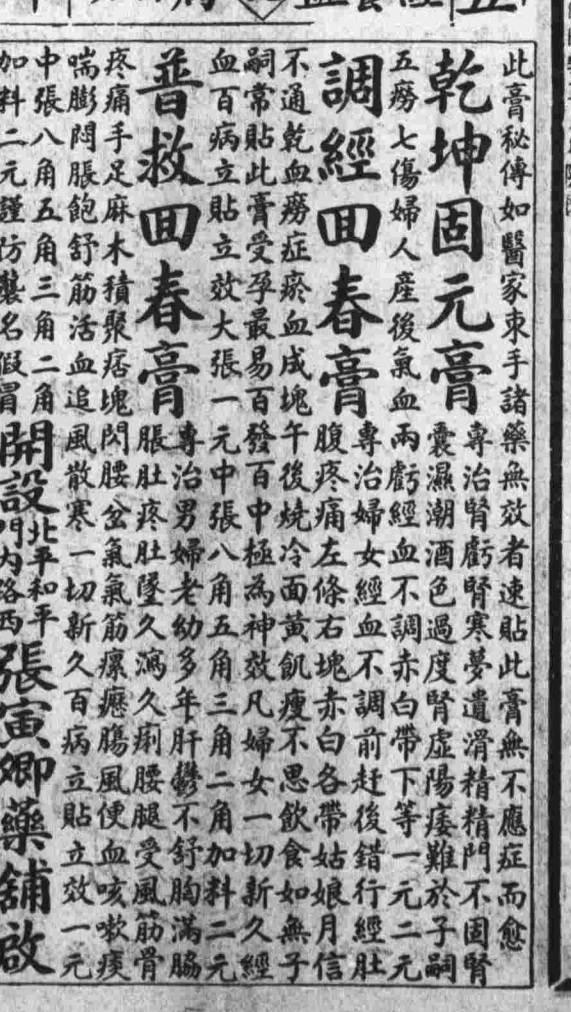 此膏秘傳如醫家束手諸藥無效者速貼此膏無不應症而愈
乾坤固元膏
專治腎虧腎寒夢遺滑精精門不固腎
囊濕潮酒色過度腎虛陽痿難於子嗣
五癆七傷婦人產後氣血兩虧經血不調赤白帶下等一元二元
調經回春膏
專治婦女經血不調前赶後錯行經肚
腹疼痛左條右塊赤白各帶姑娘月信
不通乾血癆症瘀血成塊午後燒冷面黃飢瘦不思飲食如無子
嗣常貼此膏受孕最易百發百中極為神效凡婦女一切新久經
血百病立貼立效大張一元中張八角五角三角二角加料二元
普救回春膏
專治男婦老幼多年肝鬱不舒胸滿脇
脹肚疼肚墜久瀉久痢腰腿受風筋骨
疼痛手足麻木積聚痞塊閃腰岔氣氣筋瘰癧腸風便血咳嗽痰
喘膨悶脹飽舒筋活血追風散寒一切新久百病立貼立效一元
中張八角五角三角二角
加料二元謹防襲名假冒
開設
北平和平
門內路西
張寅卿藥舖啟